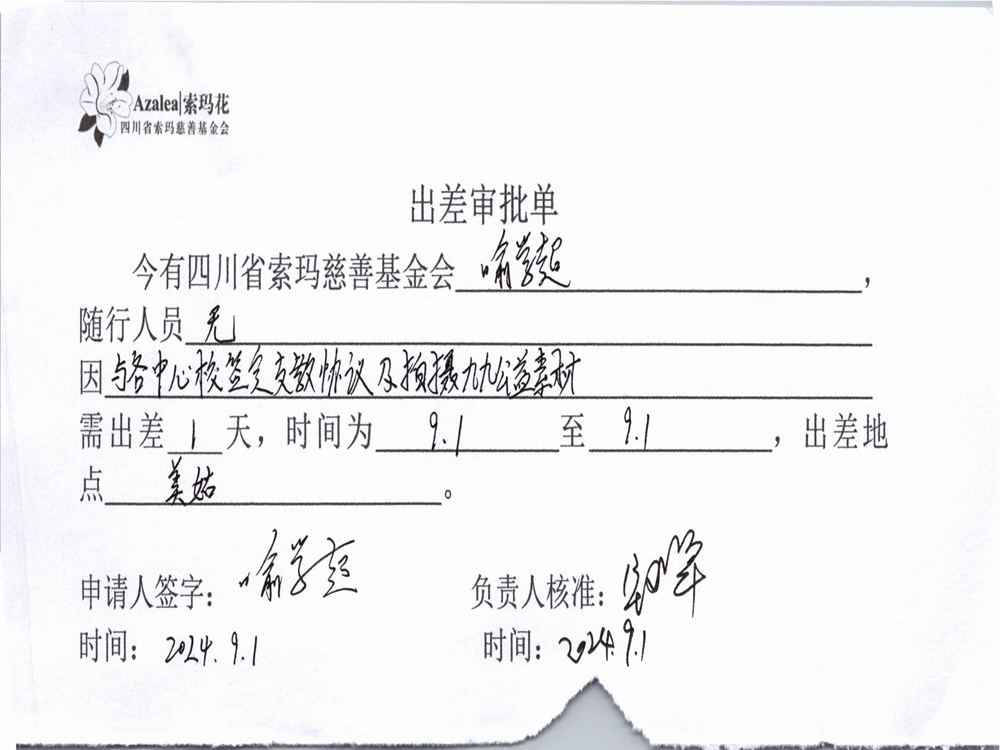 Azalea|索玛花
四川省索玛慈善基金会
出差审批单
今有四川省索玛慈善基金会 喻学超,
随行人员 无
因与各中心校签定交散协议及拍摄九九公益素材
需出差 1 天,时间为 9.1 至 9.1 ,出差地
点 美姑 。
申请人签字: 喻学超 负责人核准:
时间: 2024.9.1 时间: 2024.9.1